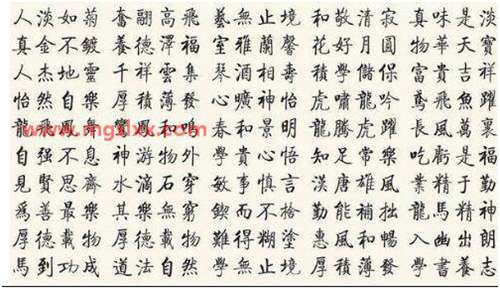 人淡如菊 奮翩高飛 藝無止境 和敬清寂 真味是淡
真金不鍍 養德澤福 室雅蘭馨 花好月圓 物華天寶
人杰地靈 千祥雲集 琴酒相壽 積學儲保 富貴吉祥
怡然自樂 厚積薄發 心曠神怡 虎嘯龍吟 鳶飛魚躍
龍飛鳳舞 鸞鳳和鳴 春和景明 龍騰虎躍 長風萬裏
自强不息 神游物外 學貴心悟 知足常樂 吃虧是福
見賢思齊 水滴石穿 敏事慎言 漢唐雄風 業精于勤
爲善最樂 其樂無窮 鍥而不捨 勤能補拙 龍馬精神
厚德載物 厚德載物 難得糊塗 惠風和暢 入幽出朗
馬到功成 道法自然 學無止境 厚積薄發 學書養志